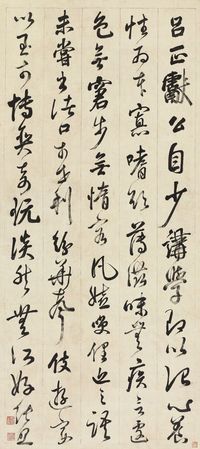 呂正獻公自少講學即以治心養
性為本寡嗜慾薄滋味無疾言遽
色無窘步無惰容凡嬉笑俚近之語
未嘗出諸口於世利紛華聲伎遊宴
以至於博奕奇玩淡然無所好